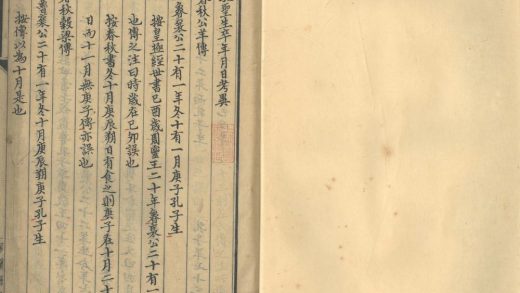 聖生卒年月日考異
春秋公羊傳
魯襄公二十有一年冬十有一月庚子孔子生
按皇極經世書己酉歲周靈王二十年魯襄公二十有一
也傳之注曰時歲在己卯誤也
按春秋書冬十月庚辰朔日有食之則庚子在十月二十
日而十一月無庚子傳亦誤也
秋穀梁傳
魯襄公二十有一年冬十月庚辰朔庚子孔子生
按傳以為十月是也